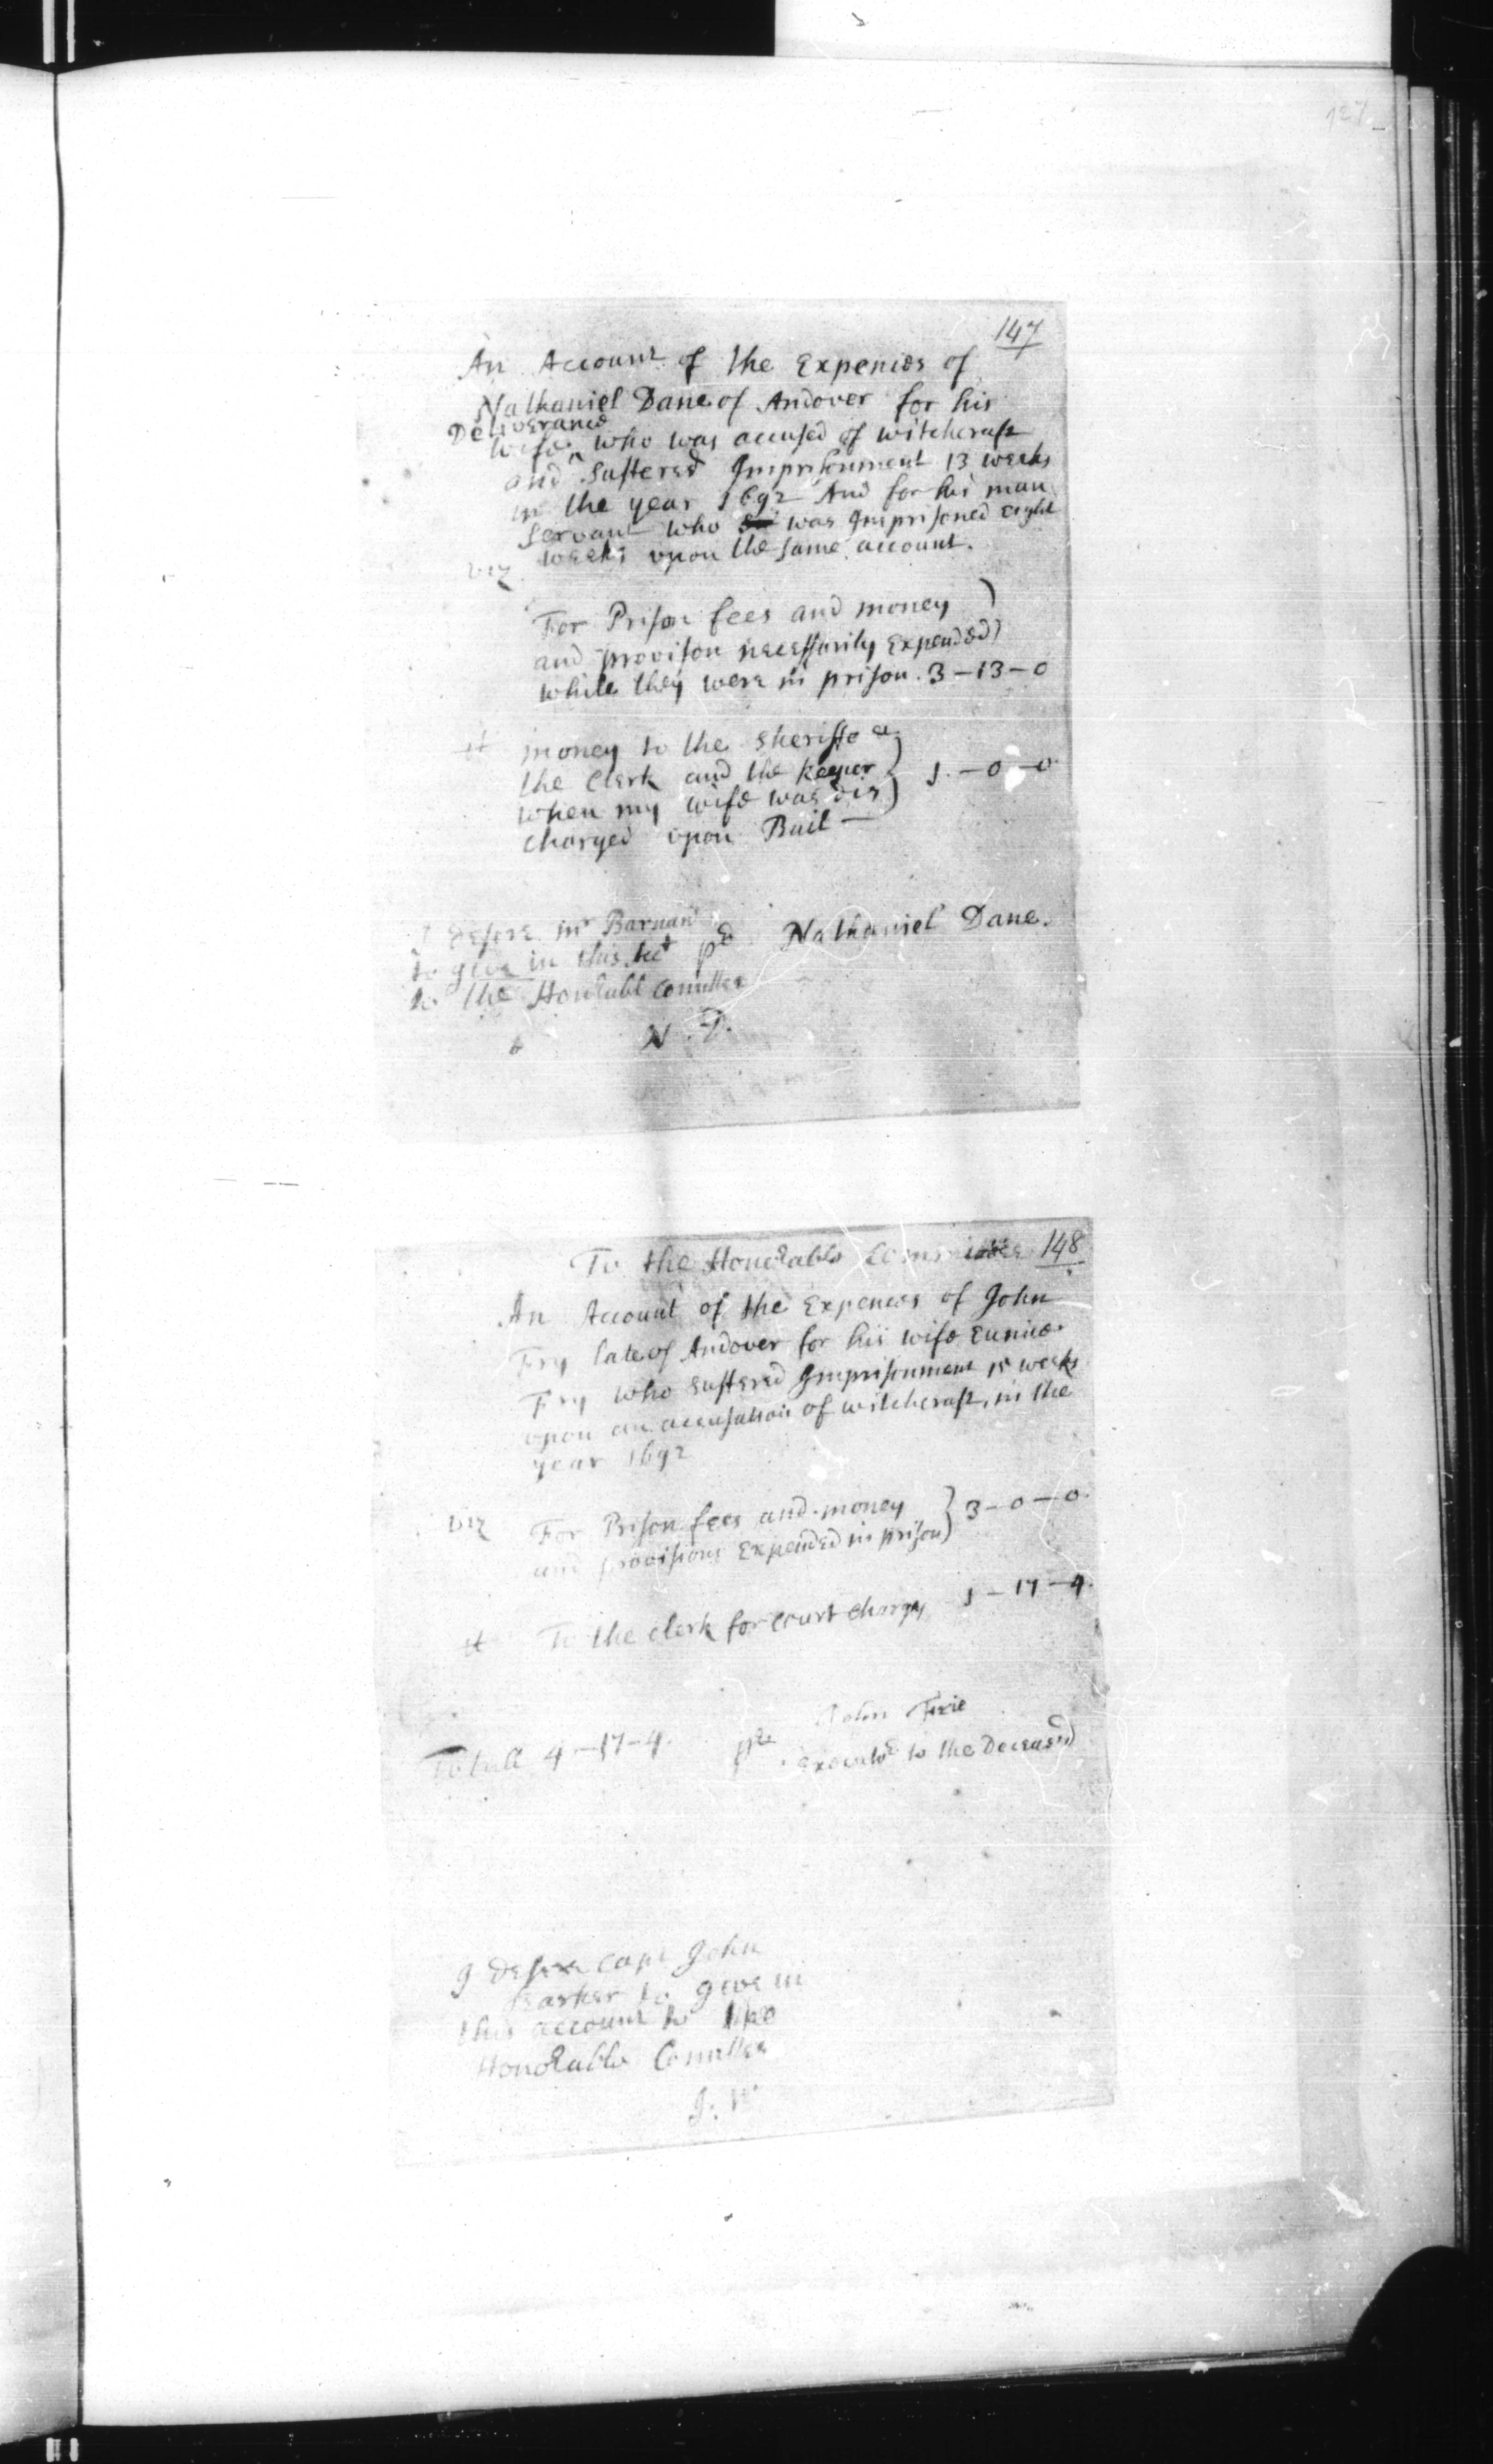 127
147
An Account of the Expences of
Nathaniel Dane of Andover for his
Deliverance
wife ^ who was accused of witchcraft
and suffered Imprisonment 13 weeks
in the year 1692 And for his man
servant who was Imprisoned eight
weeks upon the same account.
viz
For Prison fees and money
and provison necessarily Expended
while they were in prison. 3-13-0
it money to the sheriffe &
the Clerk and the keeper
when my wife was dis
charged upon Bail — 1.-0-0
I desire mr Barnard
to give in this Act
to the Honrable comittee
pr Nathaniel Dane.
N. D.
To the Honorable Committee 148
An Account of the Expences of John
Fry late of Andover for his wife Eunice
Fry who suffered Imprisonment 15 weeks
upon an accusation of witchcraft, in the
year 1692
viz For Prison fees and money
and provisions Expended in prison 3-0-0
it To the clerk for court charges 1-17-4.
John Frie
Totall 4-17-4. pr Executor to the Deceased
I desire capt John
Barker to give in
this account to the
Honorable Comittee